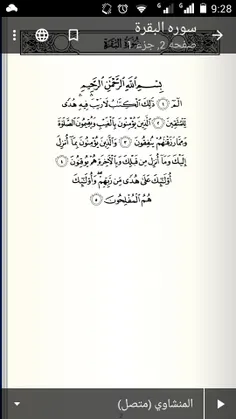 9:28
سوره البقرة
صفحه 2, جزء
بِسْمِ اللَّهِ الرَّحْمَٰنِ الرَّحِيمِ
الٓمٓ ١ ذَٰلِكَ ٱلْكِتَٰبُ لَا رَيْبَ فِيهِ هُدًى
لِّلْمُتَّقِينَ ٢ ٱلَّذِينَ يُؤْمِنُونَ بِٱلْغَيْبِ وَيُقِيمُونَ ٱلصَّلَوٰةَ
وَمِمَّا رَزَقْنَٰهُمْ يُنفِقُونَ ٣ وَٱلَّذِينَ يُؤْمِنُونَ بِمَآ أُنزِلَ
إِلَيْكَ وَمَآ أُنزِلَ مِن قَبْلِكَ وَبِٱلْءَاخِرَةِ هُمْ يُوقِنُونَ ٤
أُو۟لَٰٓئِكَ عَلَىٰ هُدًى مِّن رَّبِّهِمْ وَأُو۟لَٰٓئِكَ
هُمُ ٱلْمُفْلِحُونَ ٥
المنشاوي (متصل)